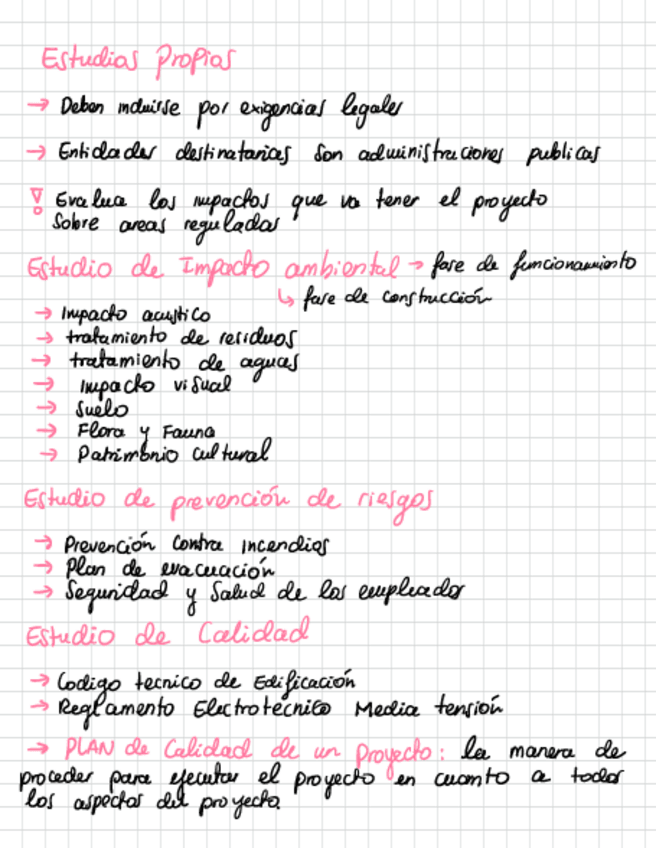 Estudios Propios
→ Deben incluirse por exigencias legales
→ Entidades destinatarias son administraciones publicas
! Evalua los impactos que va tener el proyecto
sobre areas reguladas
Estudio de Impacto ambiental → fase de funcionamiento
↳ fase de construcción
→ Impacto acustico
→ tratamiento de residuos
→ tratamiento de aguas
→ Impacto visual
→ Suelo
→ Flora y Fauna
→ Patrimonio cultural
Estudio de prevención de riesgos
→ Prevención contra incendios
→ Plan de evacuación
→ Seguridad y Salud de los empleados
Estudio de Calidad
→ Codigo tecnico de Edificación
→ Reglamento Electrotecnico Media tensión
→ PLAN de Calidad de un Proyecto: la manera de
proceder para ejecutar el proyecto en cuanto a todos
los aspectos del proyecto.